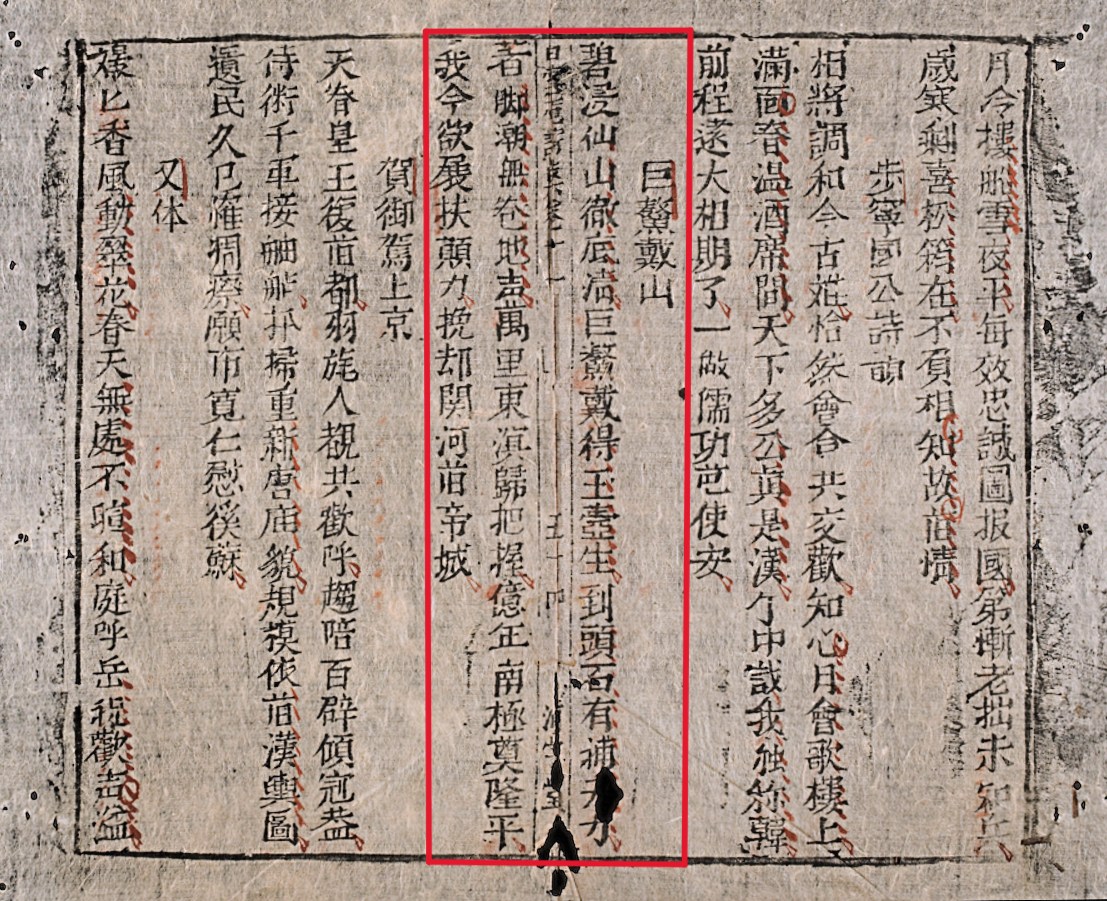 月令樓船雪夜平每效忠誠圖报國第慚老拙未知兵
歲寒剩喜松筠在不負相知故旧情
步寧國公詩韵
相將調和今古难恰然會合共交歡知心月會歌樓上
滿面春温酒席間天下多公真是漢个中誚我独称韓
前程遠大相期了一做儒功芘使安
巨鰲戴山
碧浸仙山徹底清巨鰲戴得玉壺生到頭石有補天力
五十四
堂
著脚潮無卷地声萬里東溟歸把握億年南極奠隆平
我今欲展扶顛力挽却関河旧帝城
賀御駕上京
天眷皇王復旧都羽旄人覩共歡呼趨陪百辟傾冠盖
侍衛千軍接舳艫扒掃重新唐庙貌規模依旧漢輿圖
遺民久已罹痌瘵願布寬仁慰徯蘇
又体
禳匕香風動翠花春天無處不暄和庭呼岳祝歡声溢